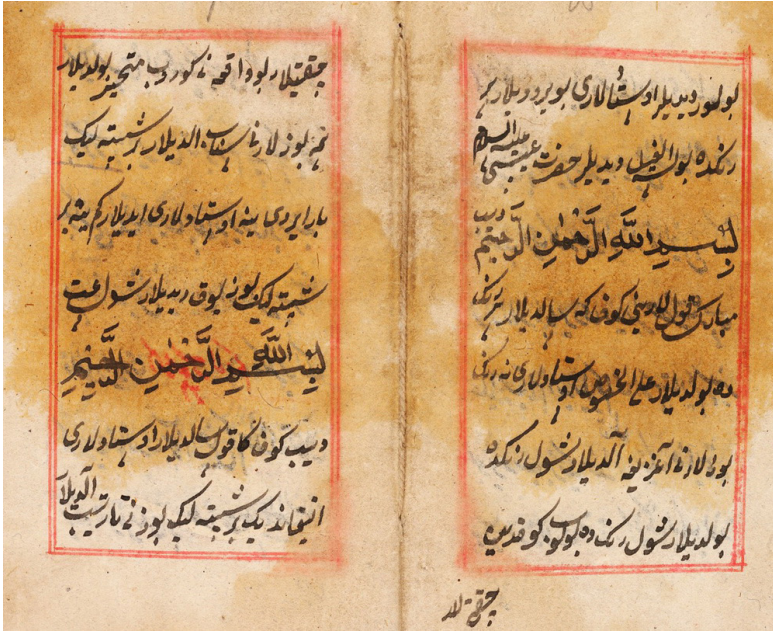 بولور دیدیلر اوستالاری بویرودیلار هر
رنکده بولسه الغیل دیدیلر حضرت عیسی علیه السلام
بسم الله الرحمن الرحیم دیب
مبارک قول لارینی کوف که سالدیلار هر رنک
ده بولدیلار علی الخصوص اوستاولاری نه رنک
بوزلارنی آغزیغه آلدیلار شول رنکده
بولدیلار شول رنک ده بولوب کوفدین
چقتی لار
چقتیلار بو واقعه نی کوروب متحیر بولدیلار
بوزلارنی ساناب الدیلار بر شپته لیک
بار ایردی ینه اوستاولاری ایدیلار کم ینه بر
شپته لیک بوز یوق دیدیلار شول ساعت
بسم الله الرحمن الرحیم
دیب کوف کا قول سالدیلار اوستاولاری
ایتقاندیک بر شپته لیک بوزنی تارتیب آلدیلار